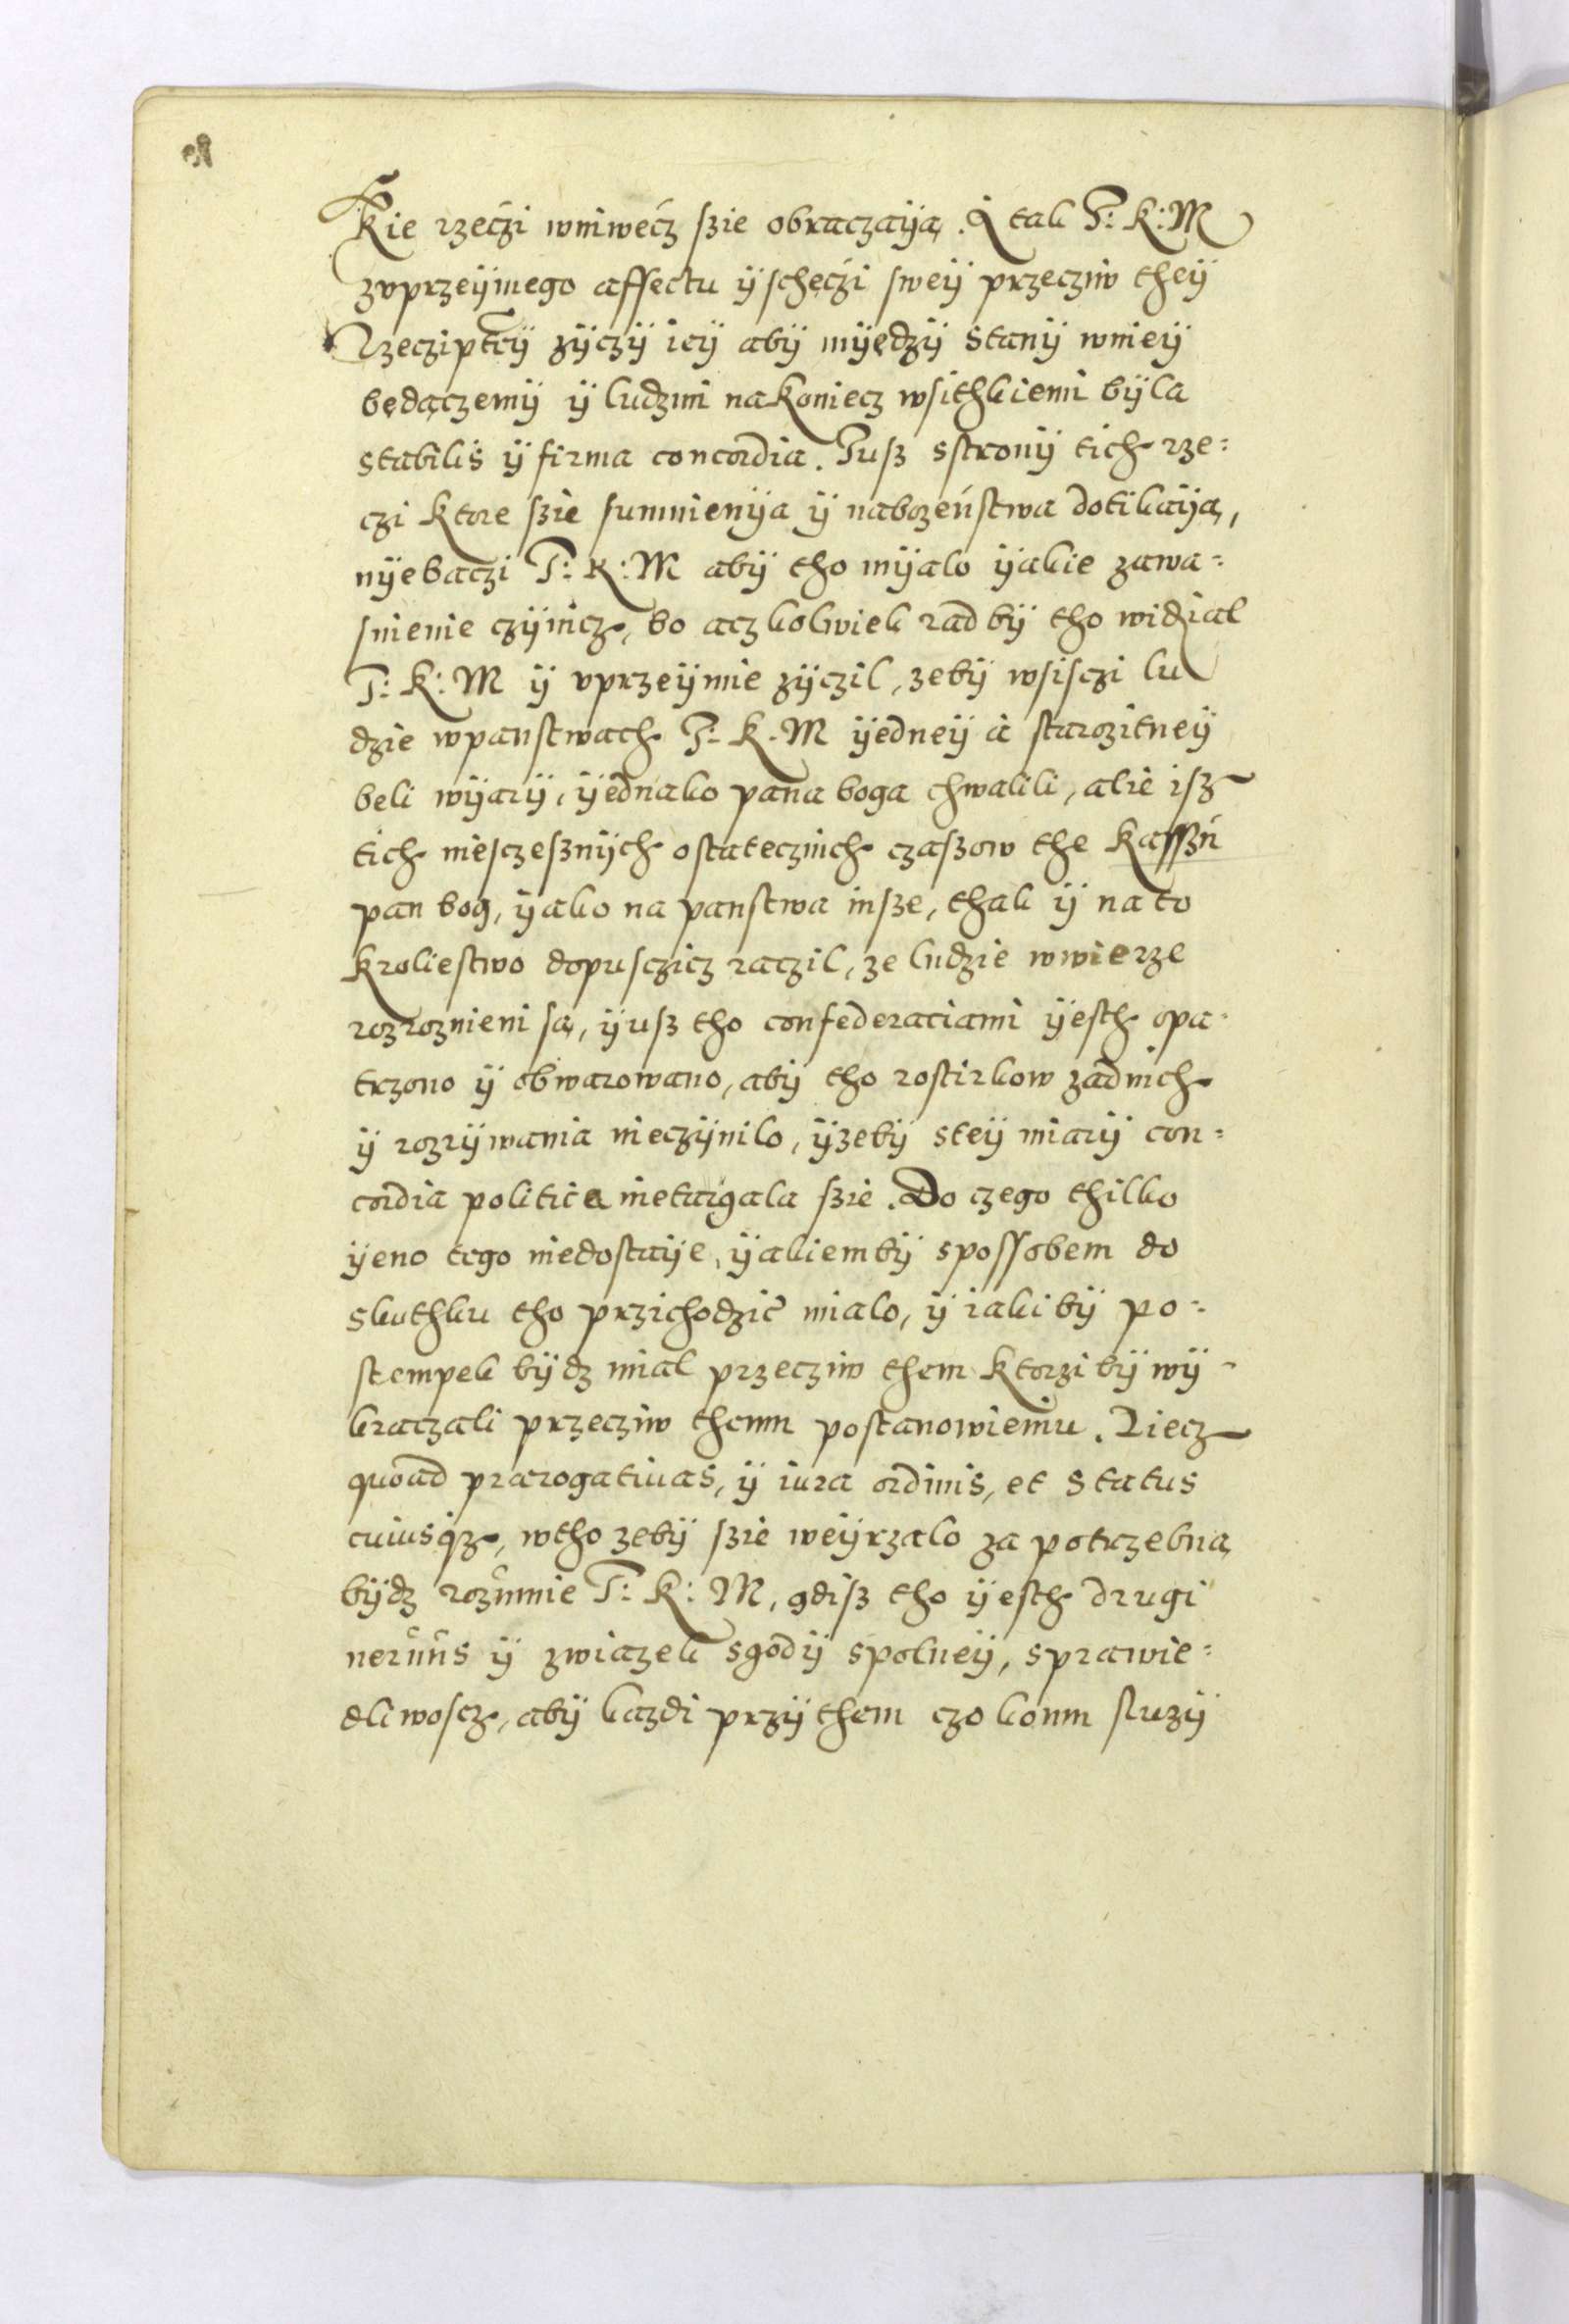 kie rzeczi wniwecz szie obraczaÿą. A tak J: K: M
zvprzeÿmego affectu ÿ scheczi sweÿ przecziw theÿ
Rzeczipteÿ zÿczÿ ieÿ abÿ mÿędzÿ stanÿ wnieÿ
będączemÿ ÿ ludzmi nakoniecz wsithkiemi bÿla
stabilis ÿ firma concordia. Jusz sstronÿ tich rze=
czi ktore szie sumnienÿa ÿ nabozeństwa dotikaÿą,
nÿebaczi J: K: M abÿ tho mÿalo ÿakie zawa=
snienie czÿnicz, bo aczkolwiek rad bÿ tho widzial
J: K: M ÿ vprzeÿmie zÿczil, zebÿ wsisczi lu
dzie wpanstwach J: K. M ÿedneÿ à starozitneÿ
beli wÿarÿ, ÿednako pana boga chwalili, alie isz
tich niesczesznÿch ostatecznich czaszow the kaszń
pan bog, ÿako na panstwa insze, thak ÿ na to
kroliestwo dopusczicz raczil, ze ludzie wwierze
rozroznieni są, ÿusz tho confederaciami ÿesth opa=
trzono ÿ obwarowano, abÿ tho rostirkow zadnich
ÿ rozrÿwania nieczÿnilo, ÿzebÿ steÿ miarÿ con=
cordia politica nietargala szie. Do czego thilko
ÿeno tego niedostaÿe, ÿakiembÿ spossobem do
skuthku tho przichodzić mialo, ÿ iaki bÿ po=
stempek bÿdz mial przecziw them ktorzi bÿ wÿ=
kraczali przecziw themu postanowieniu. Liecz
quoad prærogatiuas, ÿ iura ordinis, et status
cuiusq3, wtho zebÿ szie weÿrzalo za potrzebną
bÿdz rozumie J: K: M, gdisz tho ÿesth drugi
neruus ÿ zwiazek sgodÿ spolneÿ, sprawie=
dliwoscz, abÿ kazdi przÿ them czo komu sluzÿ